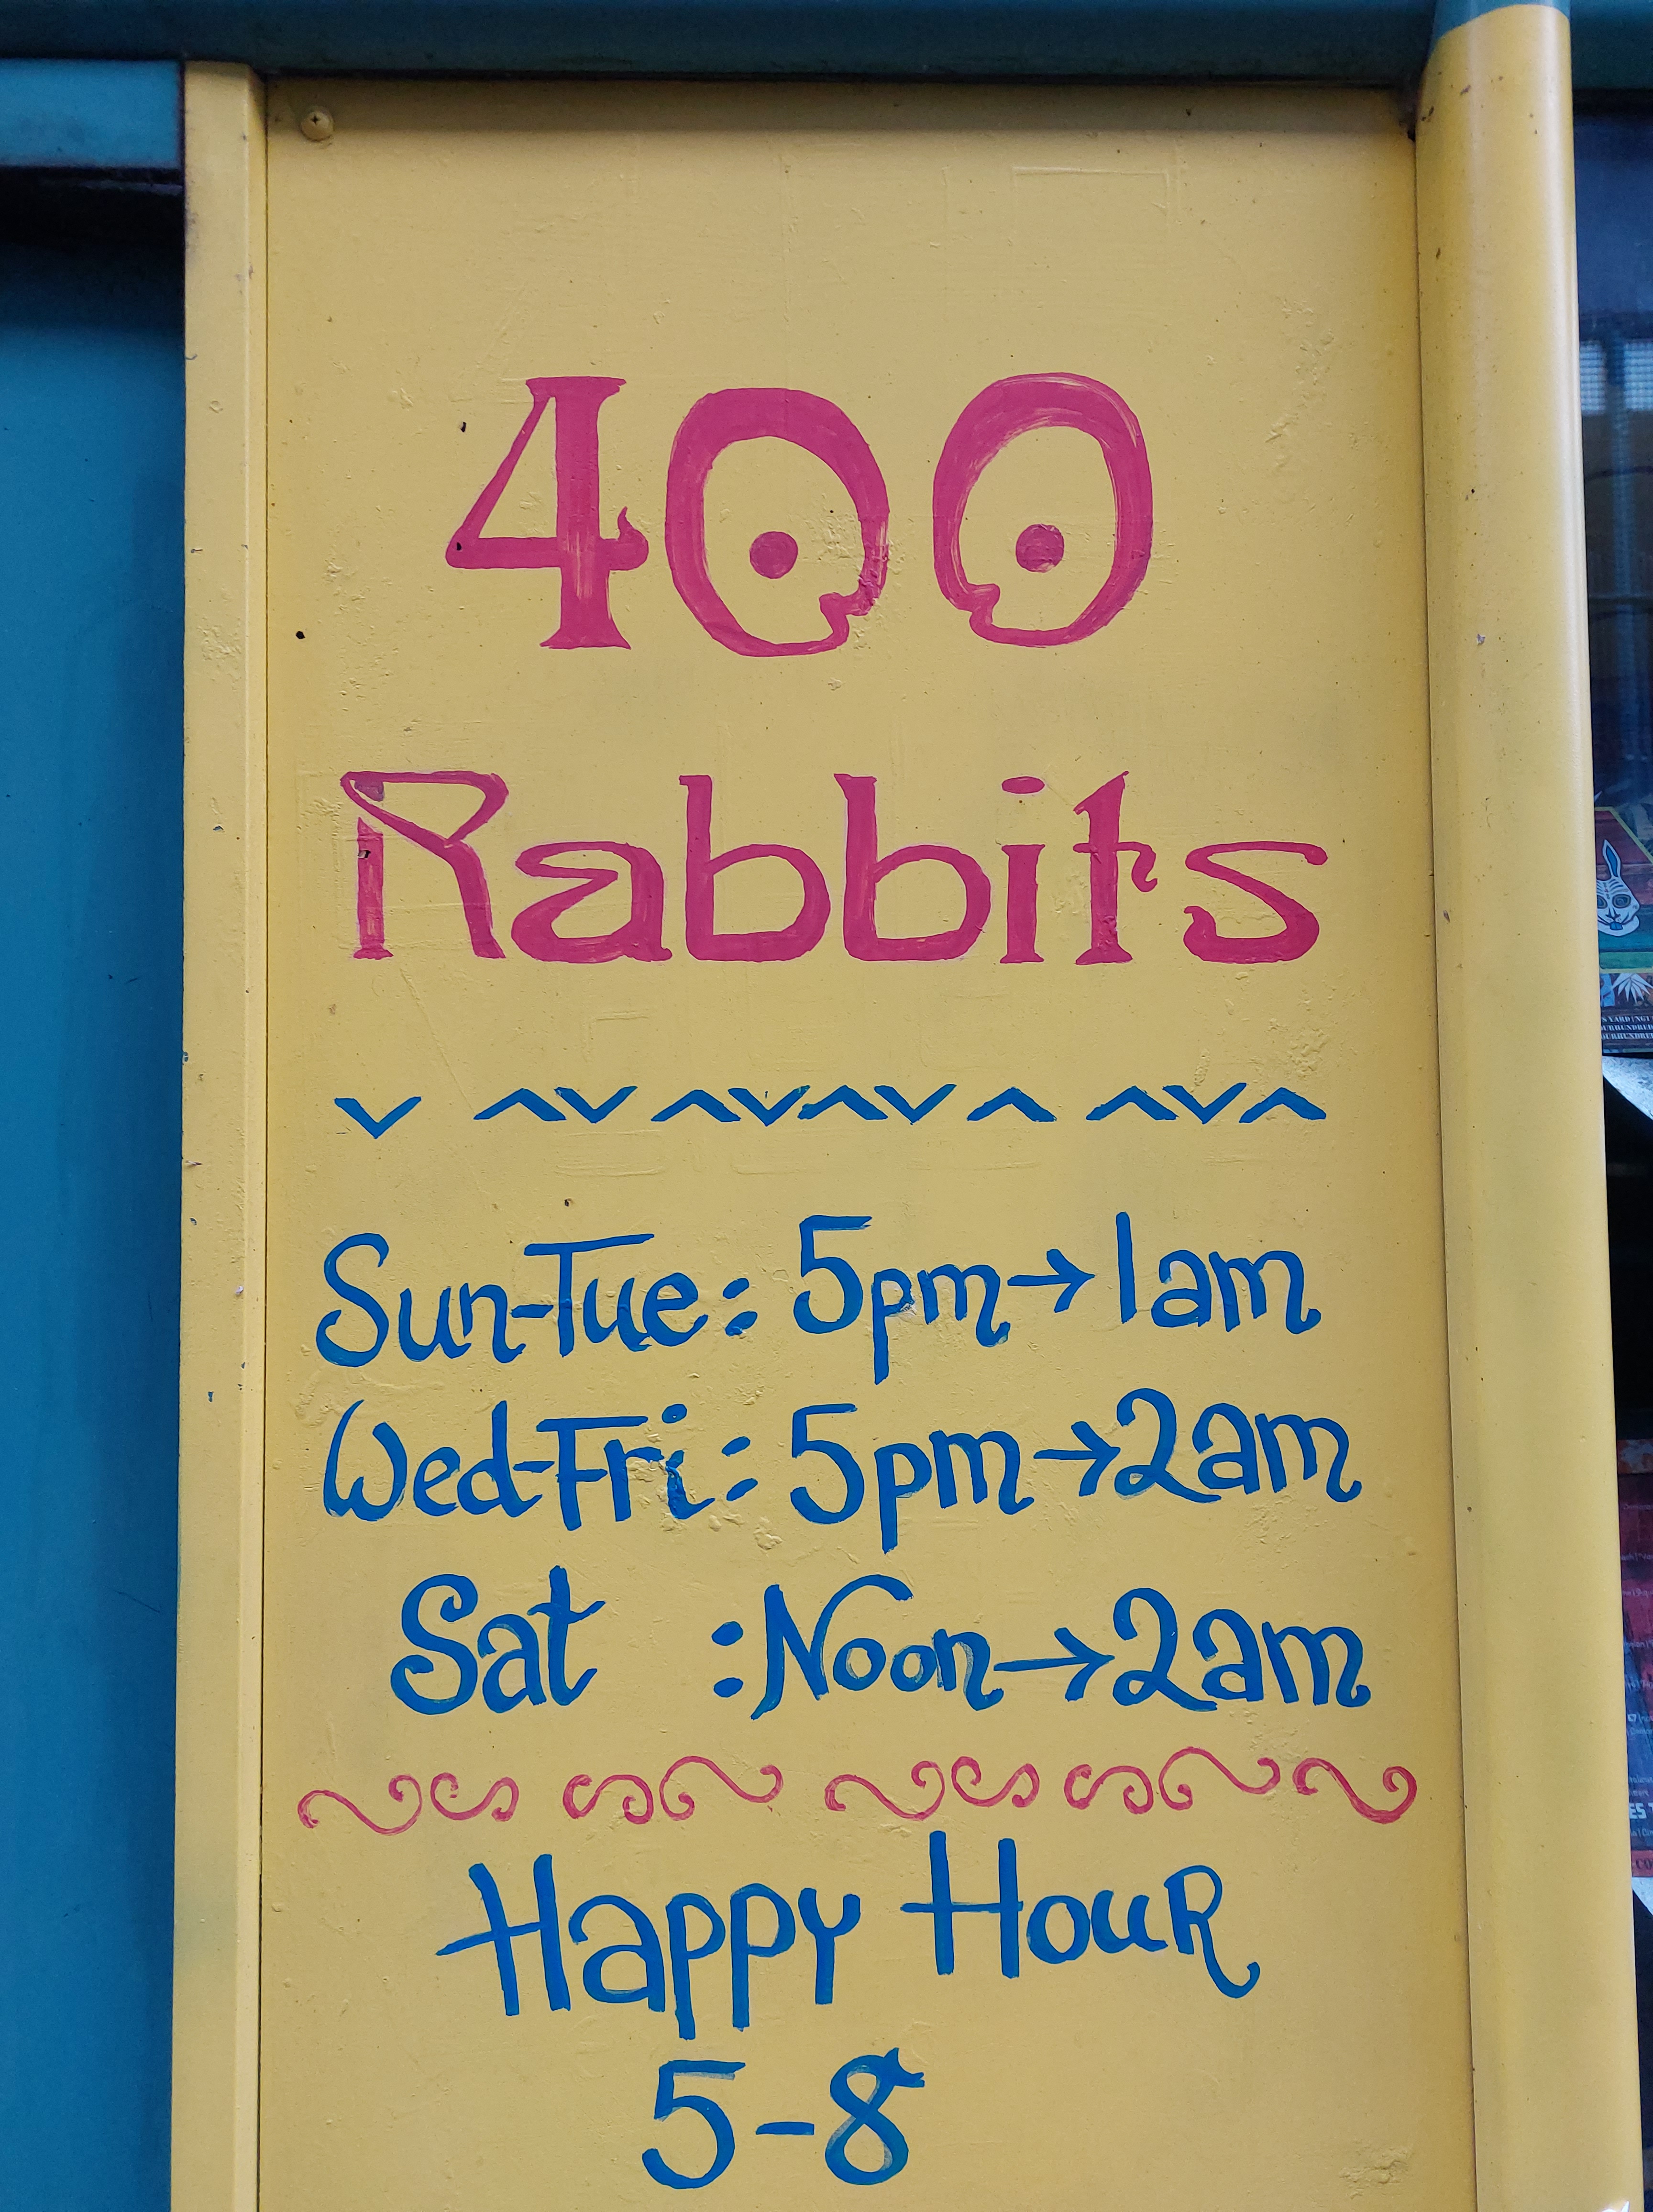 400
Rabbits
Sun-Tue: 5pm→1am
Wed-Fri: 5pm→2am
Sat :Noon→2am
Happy HouR
5-8